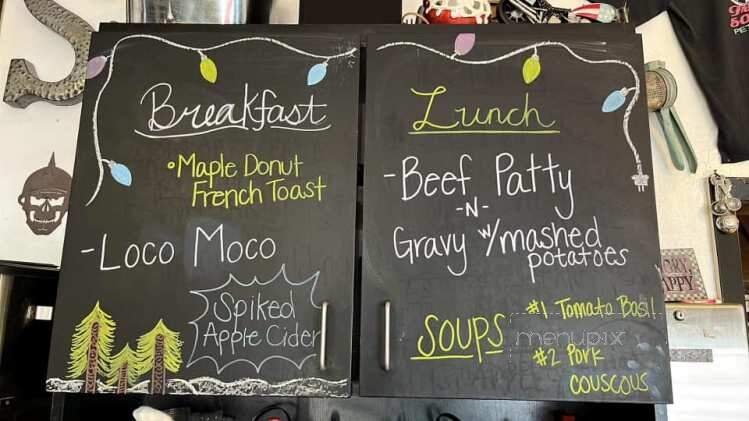 Breakfast
Maple Donut
French Toast
-Loco Moco
Spiked
Apple Cider
Lunch
-Beef Patty
-N-
Gravy w/mashed
potatoes
SOUPS
#1 Tomato Basil
#2 Pork
couscous
menupix